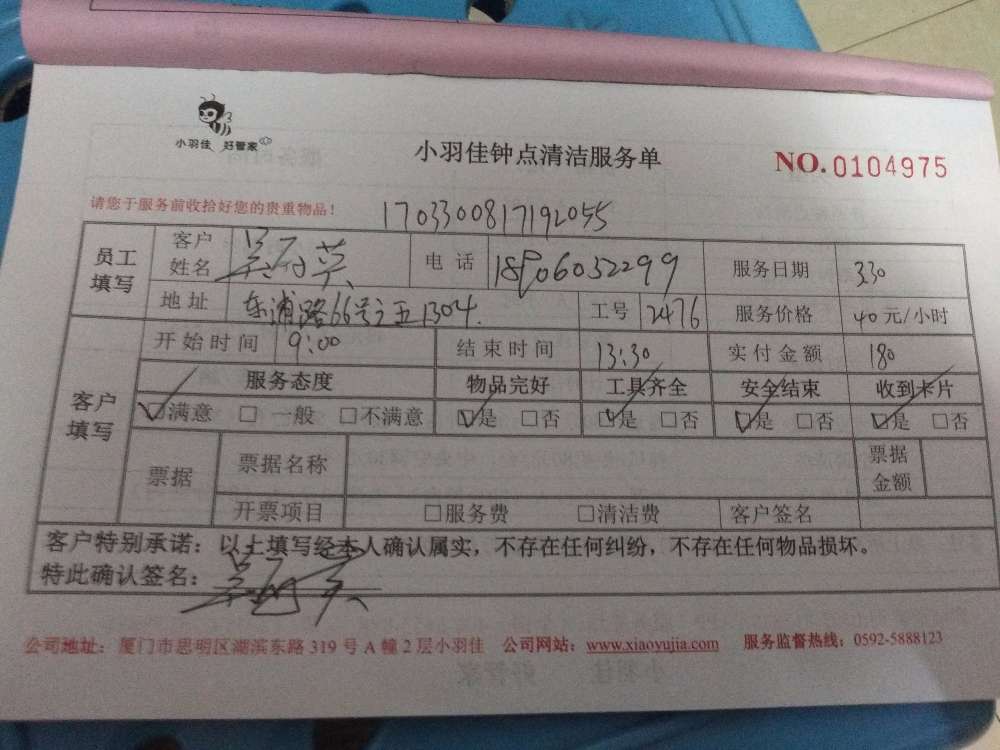 小羽佳 好管家
小羽佳钟点清洁服务单
NO.0104975
请您于服务前收拾好您的贵重物品！
1703300817192055
员工填写 客户姓名 电话 18906032299 服务日期 3.30
地址 东浦路66号之五1304. 工号 2476 服务价格 40元/小时
客户填写 开始时间 9:00 结束时间 13:30 实付金额 180
服务态度 物品完好 工具齐全 安全结束 收到卡片
☑满意 □一般 □不满意 ☑是 □否 ☑是 □否 ☑是 □否 ☑是 □否
票据 票据名称 票据金额
开票项目 □服务费 □清洁费 客户签名
客户特别承诺：以上填写经本人确认属实，不存在任何纠纷，不存在任何物品损坏。
特此确认签名：
公司地址：厦门市思明区湖滨东路319号A幢2层小羽佳 公司网站：www.xiaoyujia.com 服务监督热线：0592-5888123